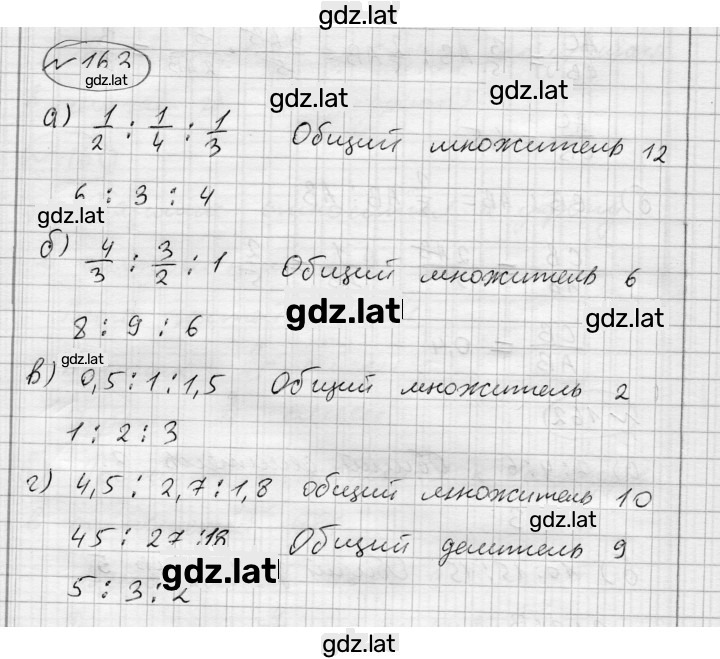 gdz.lat
№162
gdz.lat
gdz.lat
gdz.lat
а) 1/2 : 1/4 : 1/3 Общий множитель 12
6 : 3 : 4
gdz.lat
б) 4/3 : 3/2 : 1 Общий множитель 6
gdz.lat
gdz.lat
8 : 9 : 6
gdz.lat
в) 0,5 : 1 : 1,5 Общий множитель 2
1 : 2 : 3
г) 4,5 : 2,7 : 1,8 общий множитель 10
gdz.lat
45 : 27 : 18 Общий делитель 9
gdz.lat
5 : 3 : 2
gdz.lat